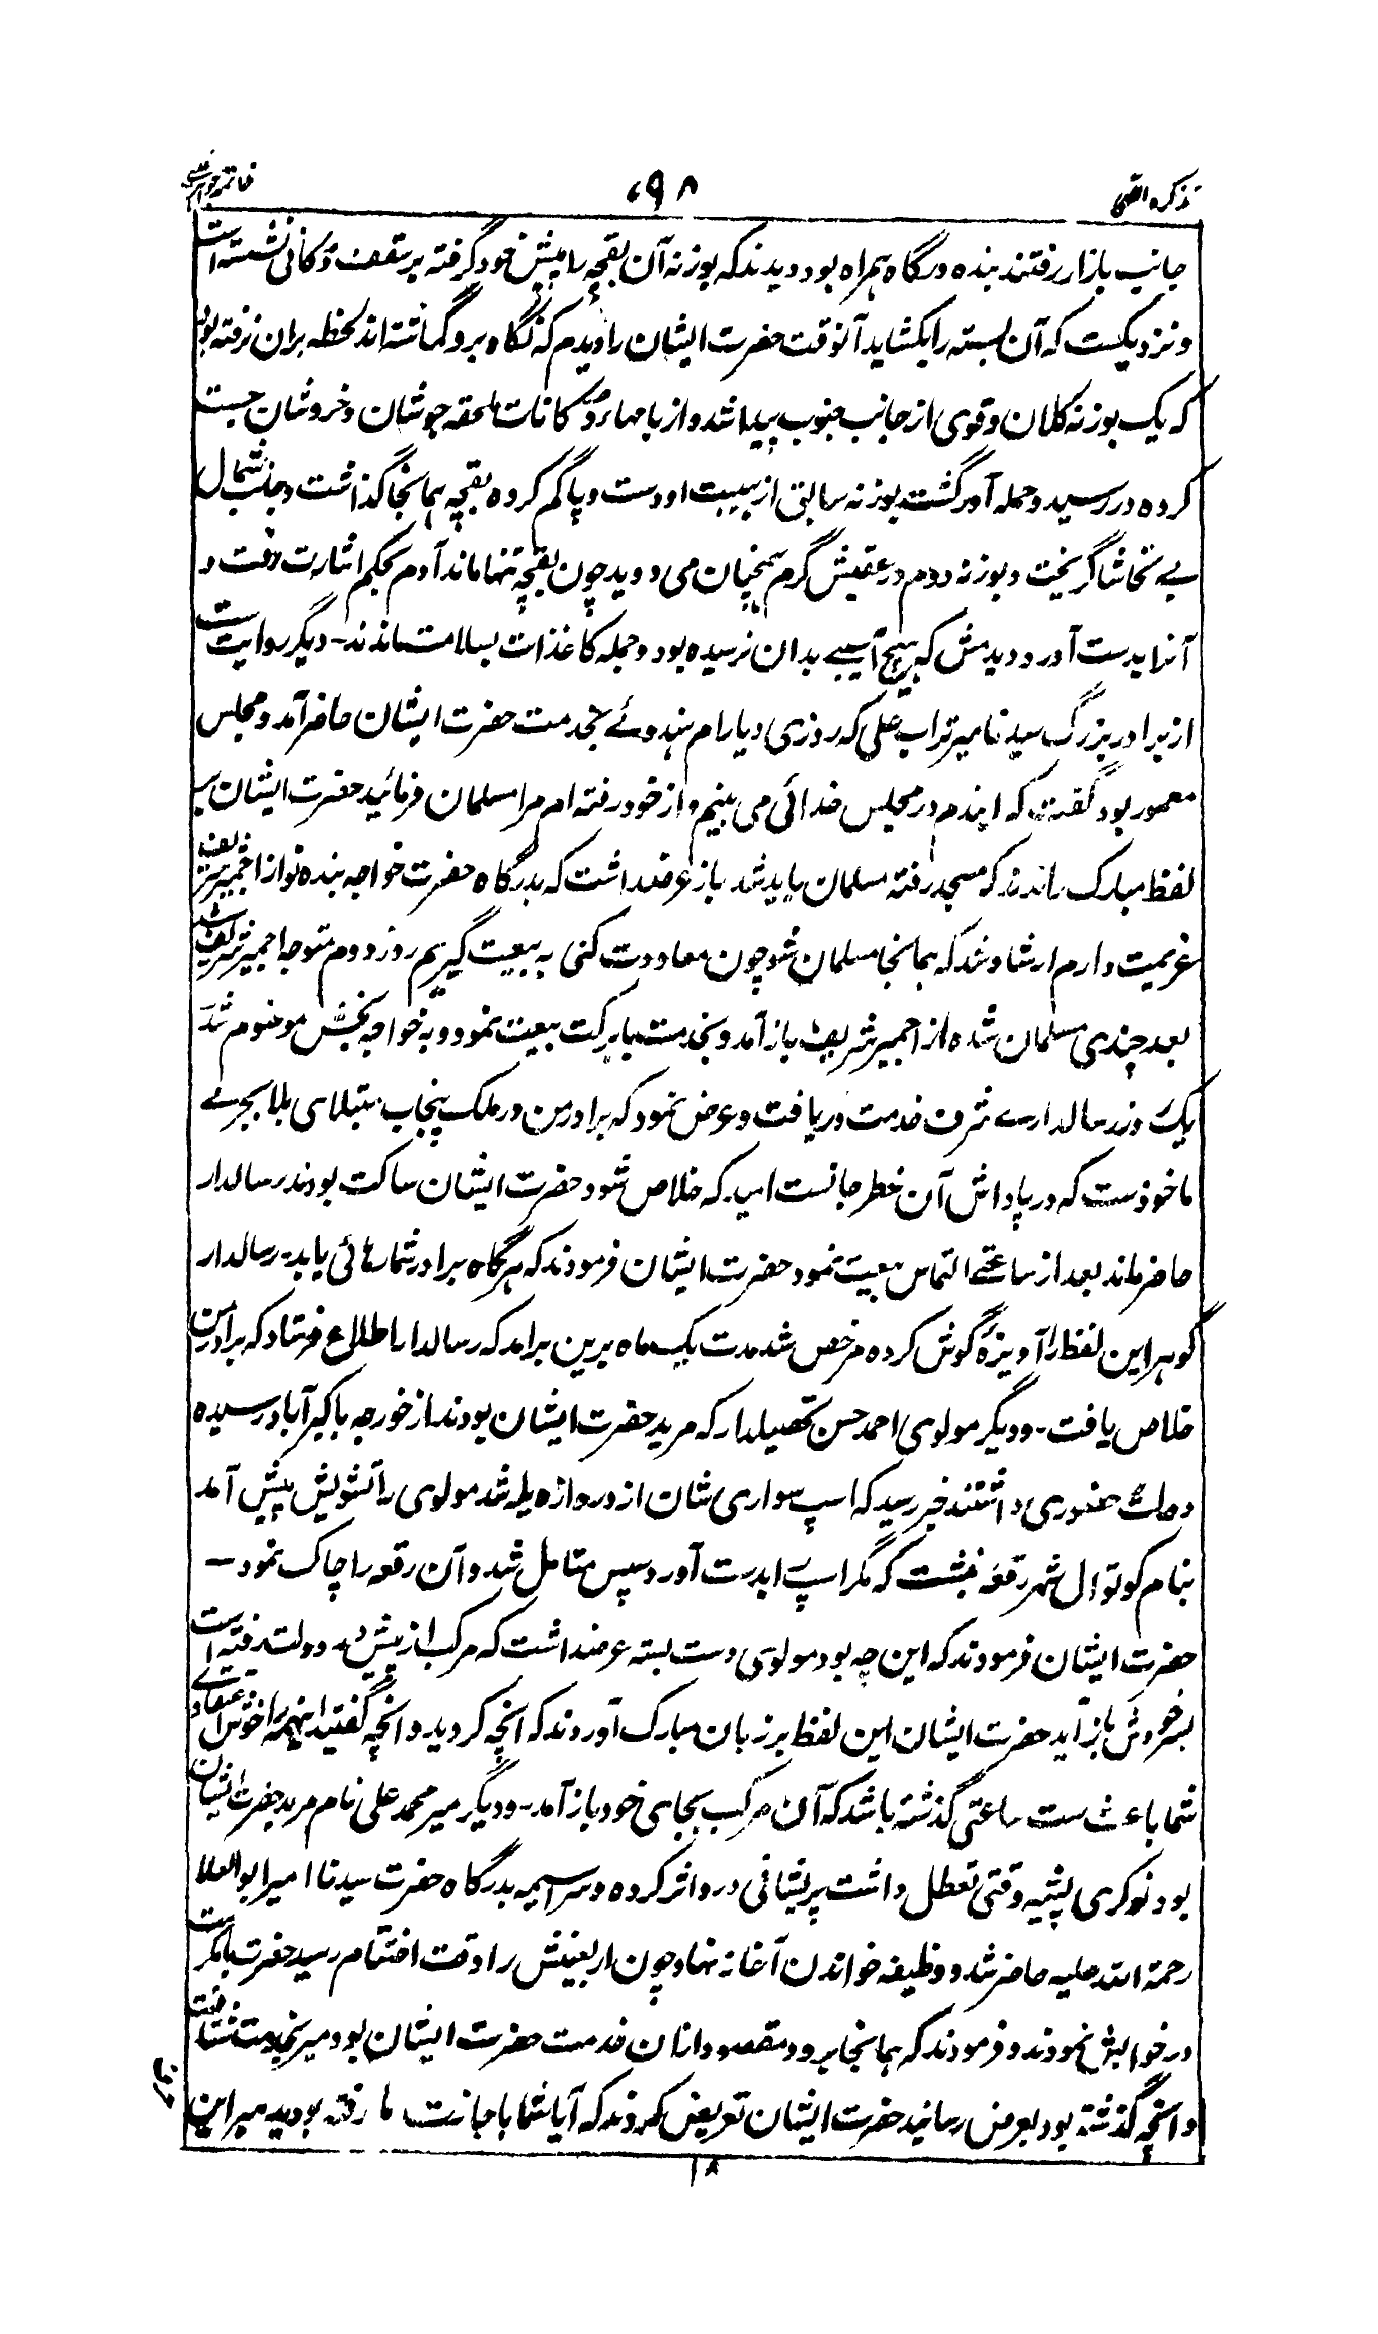 تذکره
۶۹۸
خاتمه
جانب بازار رفتند بنده درگاه همراه بود دیدند که بوزنه آن بقچه را پیش خود گرفته بر سقف دکانی نشسته است
و نزدیکست که آن بسته را بکشاید آنوقت حضرت ایشان را دیدم که نگاه بر و گماشته اند لحظه بران نرفته بود
که یک بوزنه کلان و قوی از جانب جنوب پیدا شد و از بامهاء دکانات ملحقه جوشان و خروشان جست
کرده در رسید و حمله آور گشت بوزنه سابق از هیبت او دست و پا گم کرده بقچه همانجا گذاشت و جانب شمال
بے تحاشا گریخت و بوزنه دوم در عقبش گرم همچنان می دوید چون بقچه تنها ماند آدم بحکم اشارت رفت و
آنرا بدست آورد دیدمش که هیچ آسیبے بدان نرسیده بود و جمله کاغذات بسلامت ماندند - دیگر روایت ست
از برادر بزرگ سیدنا میر تراب علی که روزی دیا رام هندوئے بخدمت حضرت ایشان حاضر آمد و مجلس
معمور بود گفت که ایندم در مجلس خدائی می بینم و از خود رفته ام مرا مسلمان فرمائید حضرت ایشان بر
لفظ مبارک راندند که مسجد رفته مسلمان باید شد باز عرضداشت که بدرگاه حضرت خواجه بنده نواز اجمیر شریف
عزیمت دارم ارشاد شد که همانجا مسلمان شو چون معاودت کنی به بیعت گیریم روز دوم متوجه اجمیر شریف شد
بعد چندی مسلمان شده از اجمیر شریف باز آمد و بخدمت بابرکت بیعت نمود و به خواجه بخش موسوم شد
یک روز رسالدارے شرف خدمت دریافت و عرض نمود که برادر من در ملک پنجاب مبتلای بلا بجرمے
ماخوذست که در پاداش آن خطر جانست امید که خلاص شود حضرت ایشان ساکت بودند رسالدار
حاضر ماند بعد از ساعتے التماس بیعت نمود حضرت ایشان فرمودند که هرگاه برادر شما رهائی یابد - رسالدار
گوهر این لفظ را آویزهٔ گوش کرده مرخص شد مدت یکماه برین برآمد که رسالدار اطلاع فرستاد که برادر من
خلاص یافت - و دیگر مولوی احمد حسن تحصیلدار که مرید حضرت ایشان بودند از خورجه باکبرآباد رسیده
دولت حضوری داشتند خبر رسید که اسپ سواری شان از دروازه یله شد مولوی را تشویش پیش آمد
بنام کوتوال شهر رقعه نبشت که مگر اسپ را بدست آورد سپس متامل شد و آن رقعه را چاک نمود -
حضرت ایشان فرمودند که این چه بود مولوی دست بسته عرضداشت که مرکب از پیش در دولت رفته است
باز آید حضرت ایشان این لفظ بر زبان مبارک آوردند که آنچه کردید و آنچه گفتید اینهمه را خوش اعتقادے
شما باعث ست ساعتی گذشته باشد که آن مرکب بجای خود باز آمد - و دیگر میر محمد علی نام مرید حضرت ایشان
بود نوکری پیشه وقتی تعطل داشت پریشانی در و اثر کرده و سراسیمه بدرگاه حضرت سیدنا امیر ابوالعلا
رحمة الله علیه حاضر شد و وظیفه خواندن آغاز نهاد چون اربعینش را وقت اختتام رسید حضرت بابرکت
در خوابش نمودند و فرمودند که همانجا برو و مقصود ازان خدمت حضرت ایشان بود میر بخدمت شتافت
و آنچه گذشته بود بعرض رسانید حضرت ایشان تعریض کردند که آیا شما باجازت ما رفته بودید میر این
۱۸